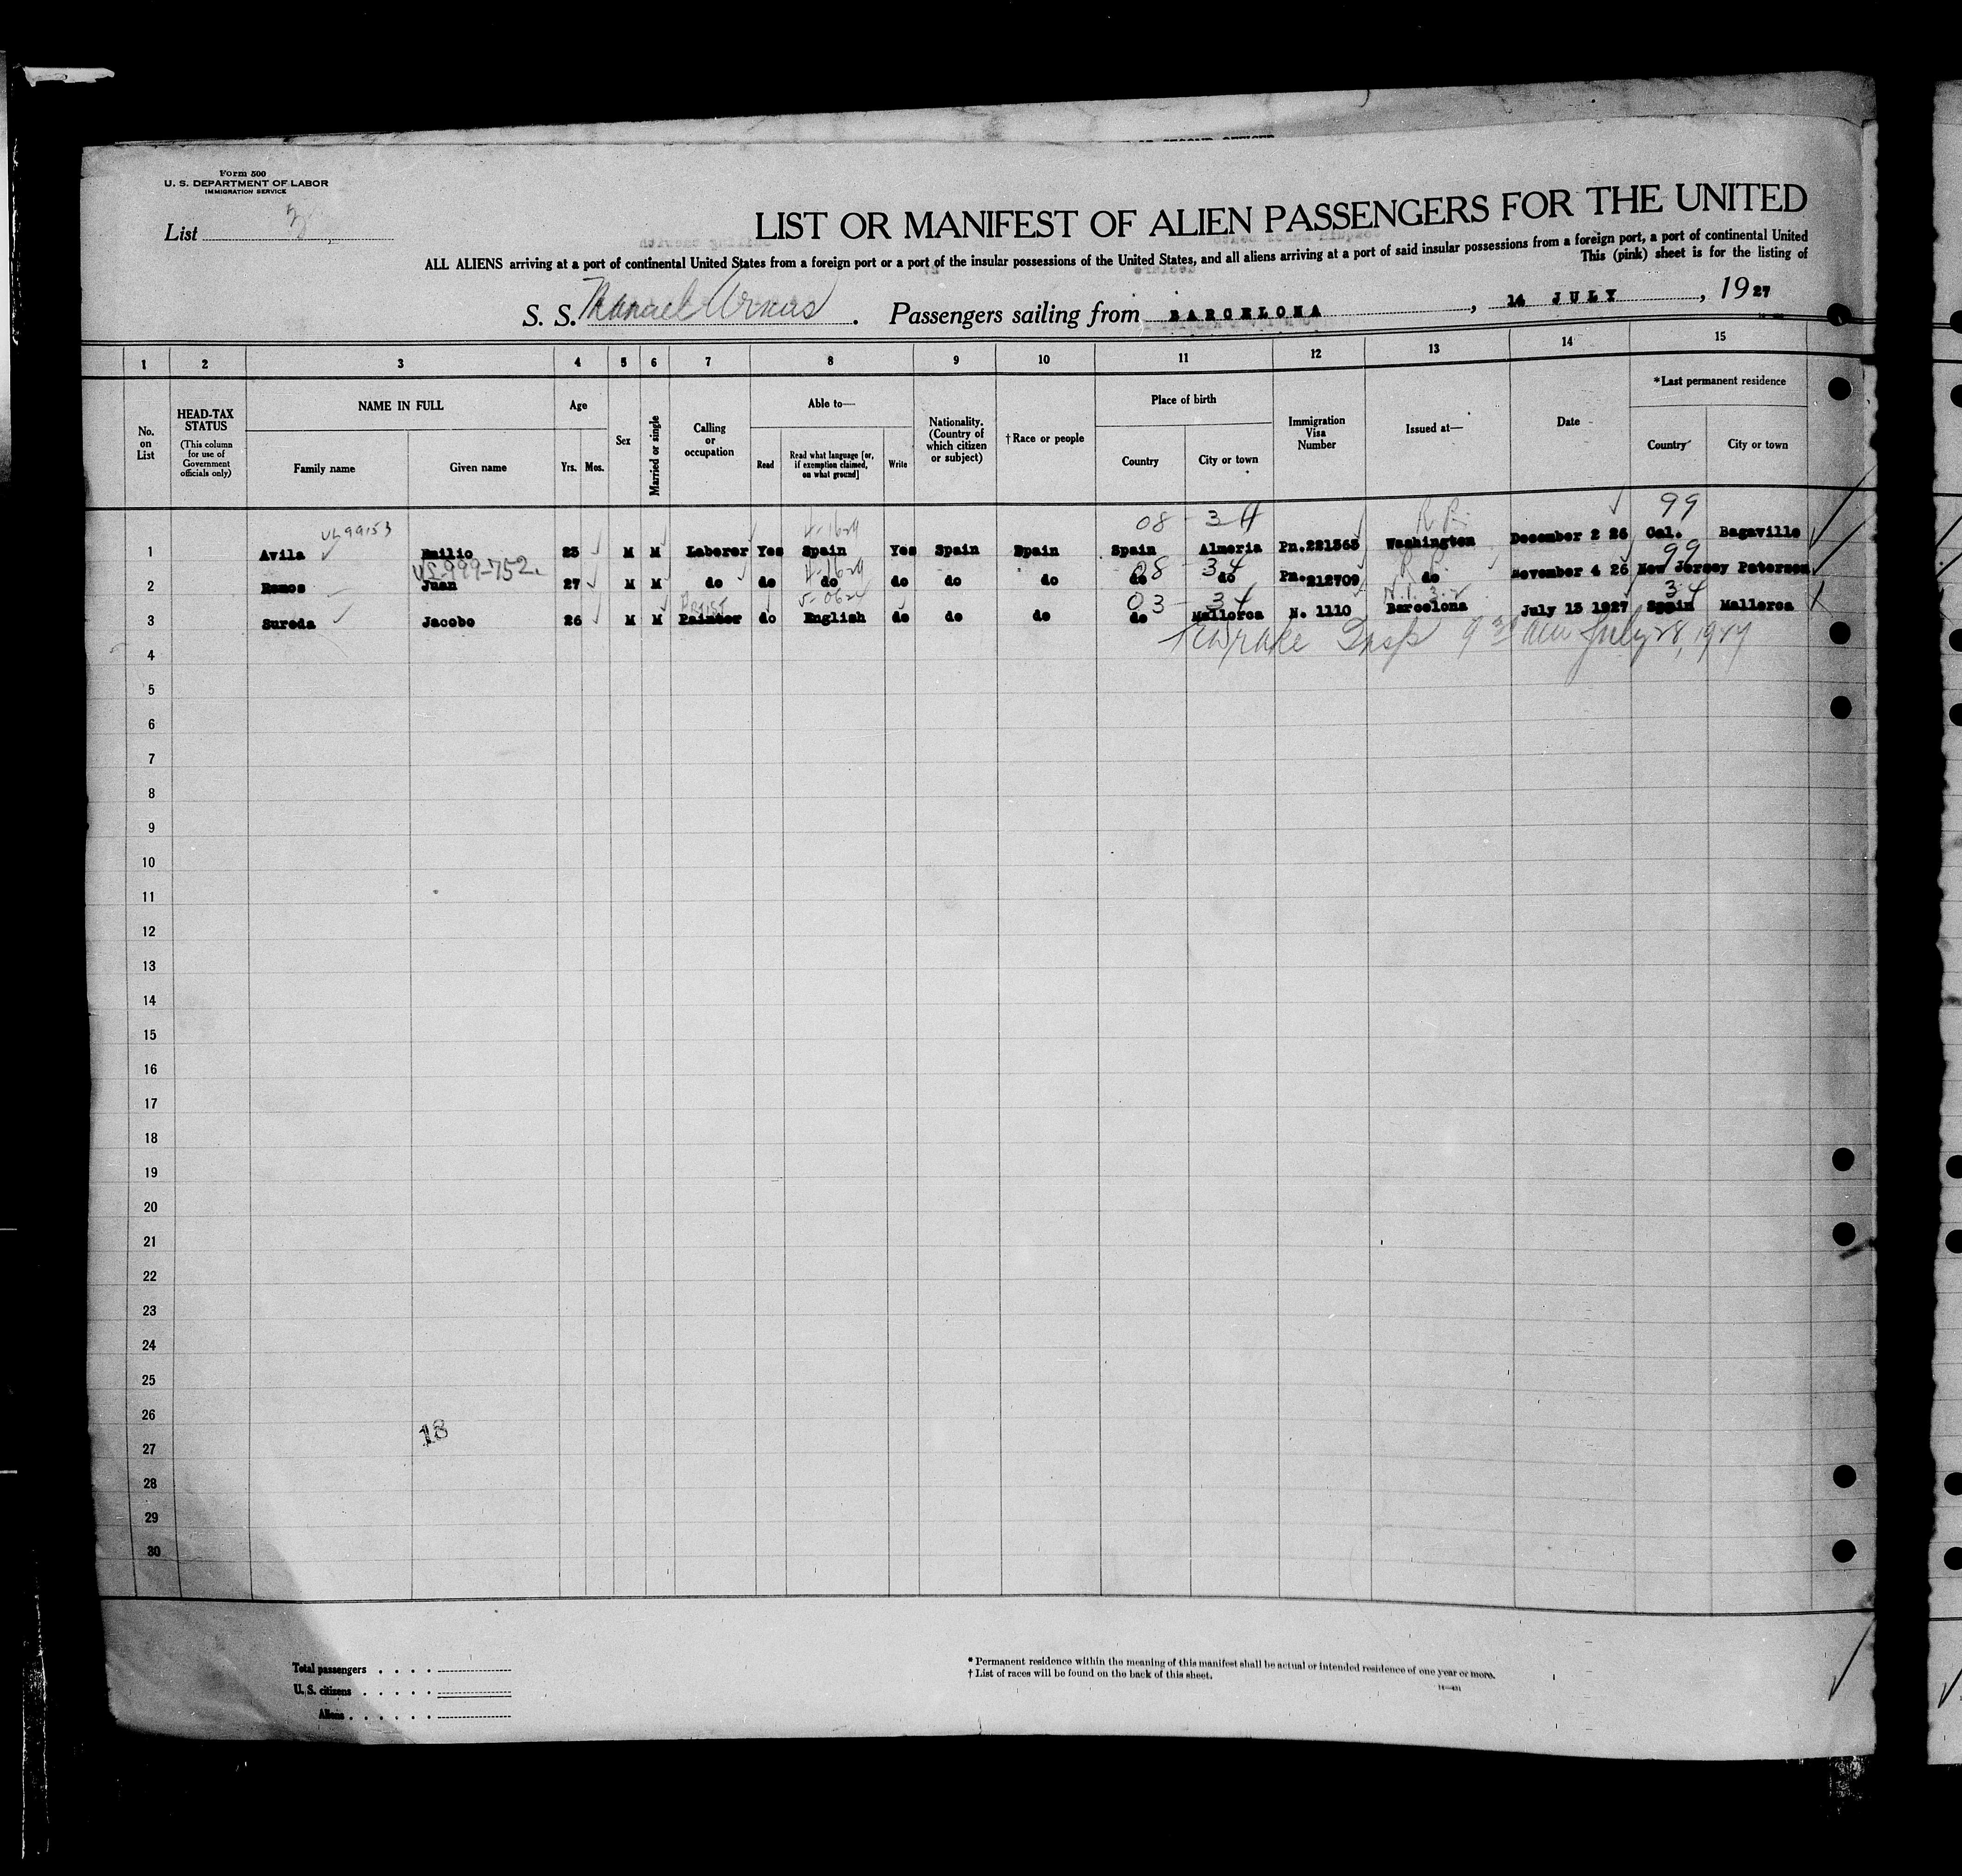 Form 500
U. S. DEPARTMENT OF LABOR
IMMIGRATION SERVICE
List 3
LIST OR MANIFEST OF ALIEN PASSENGERS FOR THE UNITED
ALL ALIENS arriving at a port of continental United States from a foreign port or a port of the insular possessions of the United States, and all aliens arriving at a port of said insular possessions from a foreign port, a port of continental United
This (pink) sheet is for the listing of
S. S. Manuel Arnus. Passengers sailing from BARCELONA, 14 JULY, 1927
1 2 3 4 5 6 7 8 9 10 11 12 13 14 15
No. on List
HEAD-TAX STATUS
(This column for use of Government officials only)
NAME IN FULL
Family name Given name
Age
Yrs. Mos.
Sex
Married or single
Calling or occupation
Able to—
Read
Read what language [or, if exemption claimed, on what ground]
Write
Nationality. (Country of which citizen or subject)
†Race or people
Place of birth
Country City or town
Immigration Visa Number
Issued at—
Date
*Last permanent residence
Country City or town
VL99153 08 - 34 R.P. 99
1 Avila Emilio 23 M M Laborer Yes Spain Yes Spain Spain Spain Almeria Pn.221363 Washington December 2 26 Cal. Bagaville
VS-999-752. 08 34 R.P. 99
2 Ramos Juan 27 M M do do do do do do do do Pn.212709 do November 4 26 New Jersey Paterson
Artist 03 - 34 34
3 Sureda Jacobo 26 M M Painter do English do do do do Mallorca N. 1110 Barcelona July 13 1927 Spain Mallorca
Insp 9 30 am July 28, 1927
4
5
6
7
8
9
10
11
12
13
14
15
16
17
18
19
20
21
22
23
24
25
26
18
27
28
29
30
Total passengers . . . .
U. S. citizens . . . . .
Aliens . . . . . .
* Permanent residence within the meaning of this manifest shall be actual or intended residence of one year or more.
† List of races will be found on the back of this sheet.